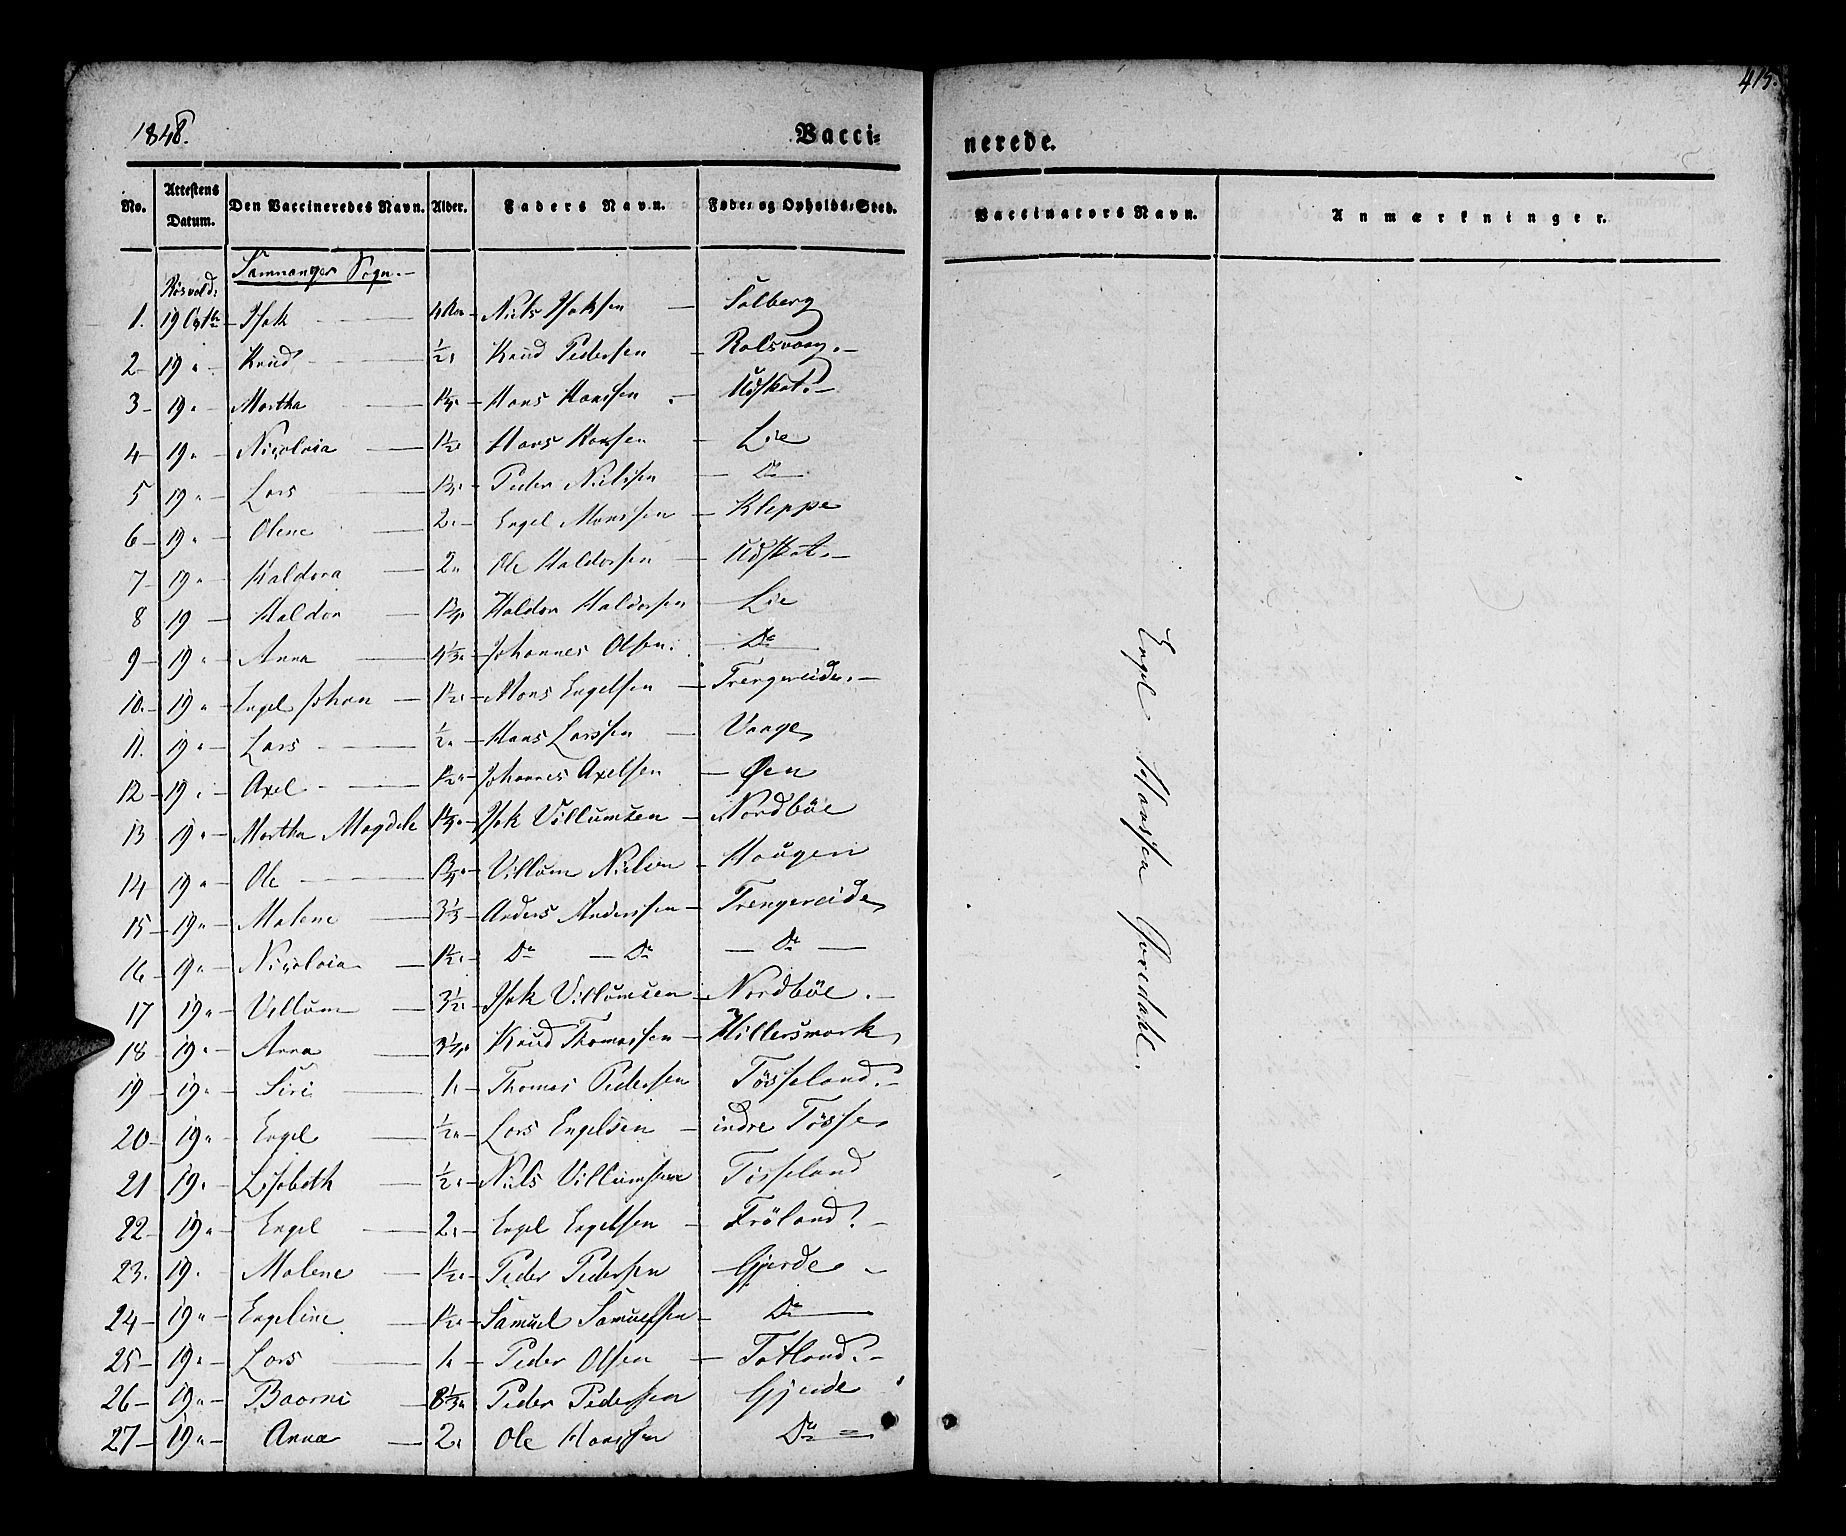 1848.
Vacci=
nerede.
415.
No. Attestens Datum. Den Vaccineredes Navn. Alder. Faders Navn. Føde- og Opholds-Sted. Vaccinators Navn. Anmærkninger.
Samnanger Sogn.
1. 19 Isak Niels Isaksen Solberg
2 19 " Knud ½ Knud Pedersen Rolsvaag
3 19 " Martha Hans Hansen Udskot
4 19 " Nicolaia 1½ Hans Hansen Lie
5 19 " Lars Peder Nielssen Do
6 19 " Olene 2 " Engel Monssen Kleppe
7 19 " Haldora 2 " Ole Haldorsen Udskot
8 19 Haldor Haldor Haldorsen Lie
9 19 " Anna 4⅓ Johannes Olsen Do
10. 19 " Engel Johan 1½ Mons Engelsen Trengereide
11. 19 " Lars ½ " Hans Larssen Vaage
12 19 " Axel 1½ " Johannes Axelsen Øen
13 19 " Martha Magdele Isak Villumsen Nordbøe
14 19 " Ole Villum Nielsen Haugen
15 19 " Malene 3⅓ Anders Anderssen Trengereide
16 19 " Nicolaia 1½ Do Do Do
17 19 " Villum 3½ Isak Villumsen Nordbøe
18 19 " Anna Knud Thomassen Hillersmark
19 19 " Siri 1 " Thomas Pedersen Tösseland
20 19 " Engel ½ " Lars Engelsen indre Tösse
21 19 " Lisabeth ½ " Niels Villumsen Tösseland
22 19 " Engel 2 " Engel Engelsen Fröland
23. 19 " Malene 1½ " Peder Pedersen Gjerde
24 19 " Engeline 1½ " Samuel Samuelsen Do
25 19 " Lars 1 " Peder Olsen Totland
26 19 " Baarni 8⅓ " Peder Pederssen Gjerde
27 19 " Anna 2 " Ole Hanssen Do
Engel Haassen